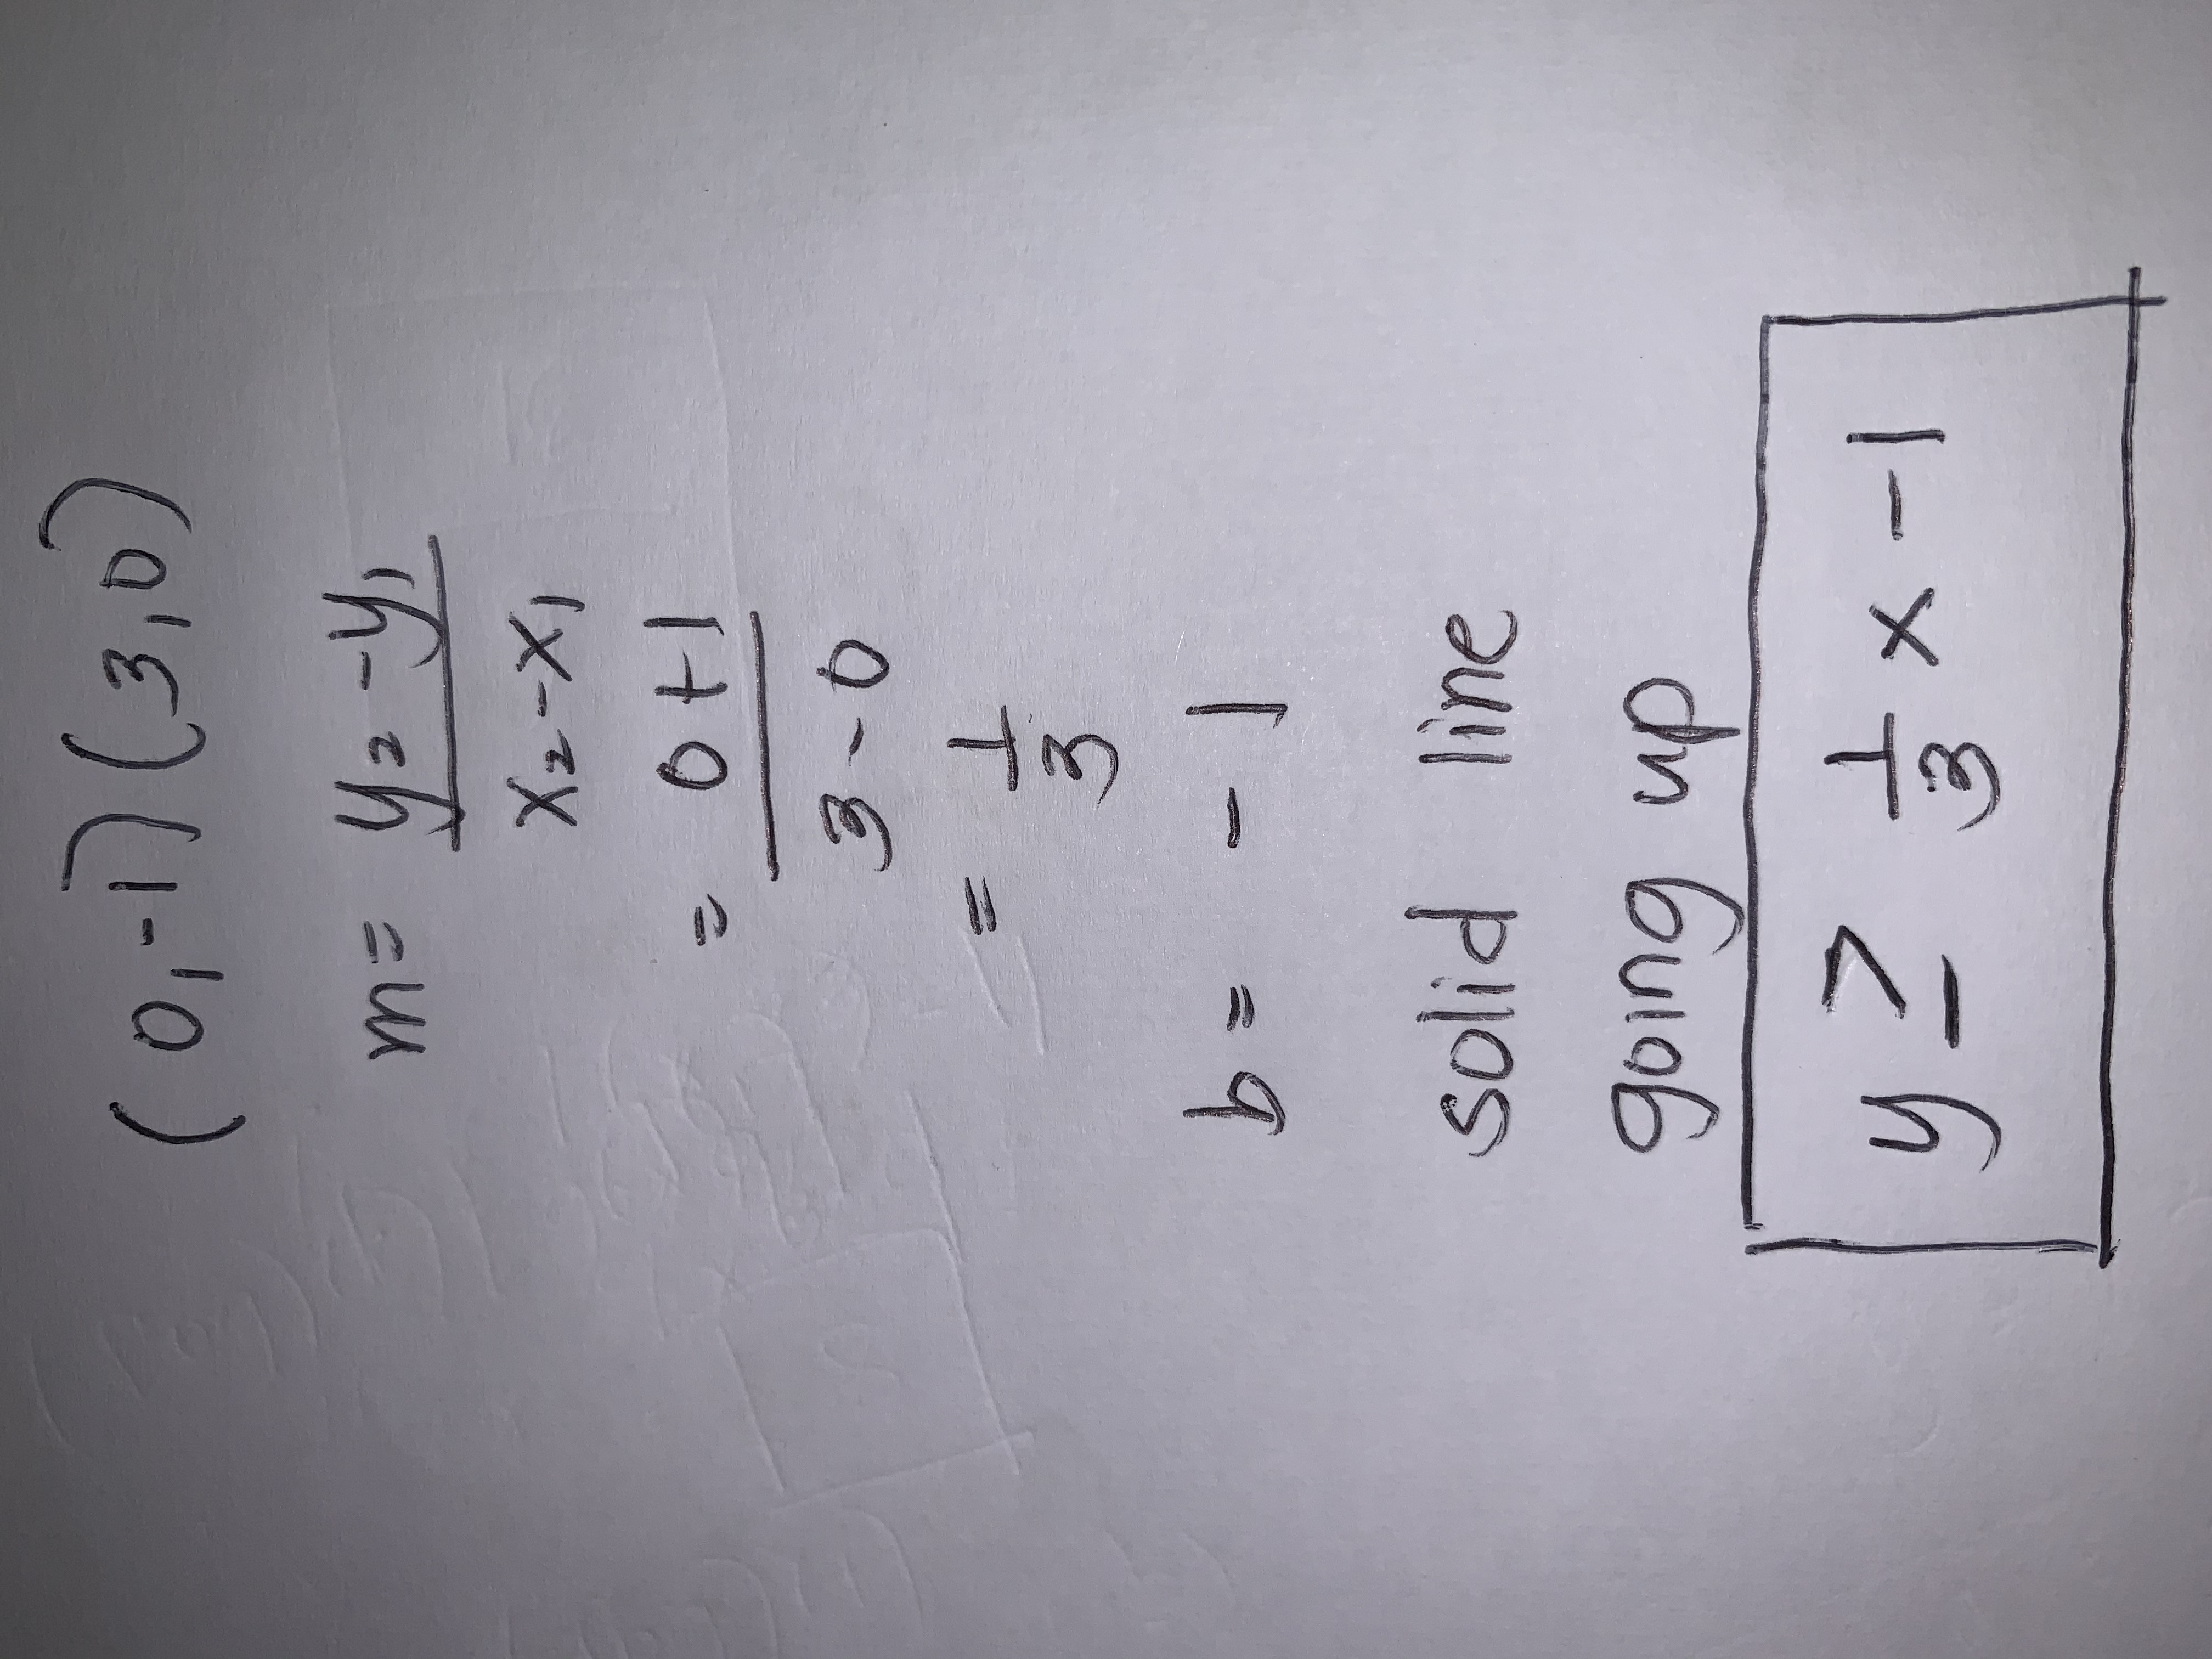 (0,-1) (3,0)
m= y₂-y₁
x₂-x₁
= 0+1
3-0
= 1
3
b= -1
solid line
going up
y ≥ 1/3 x -1